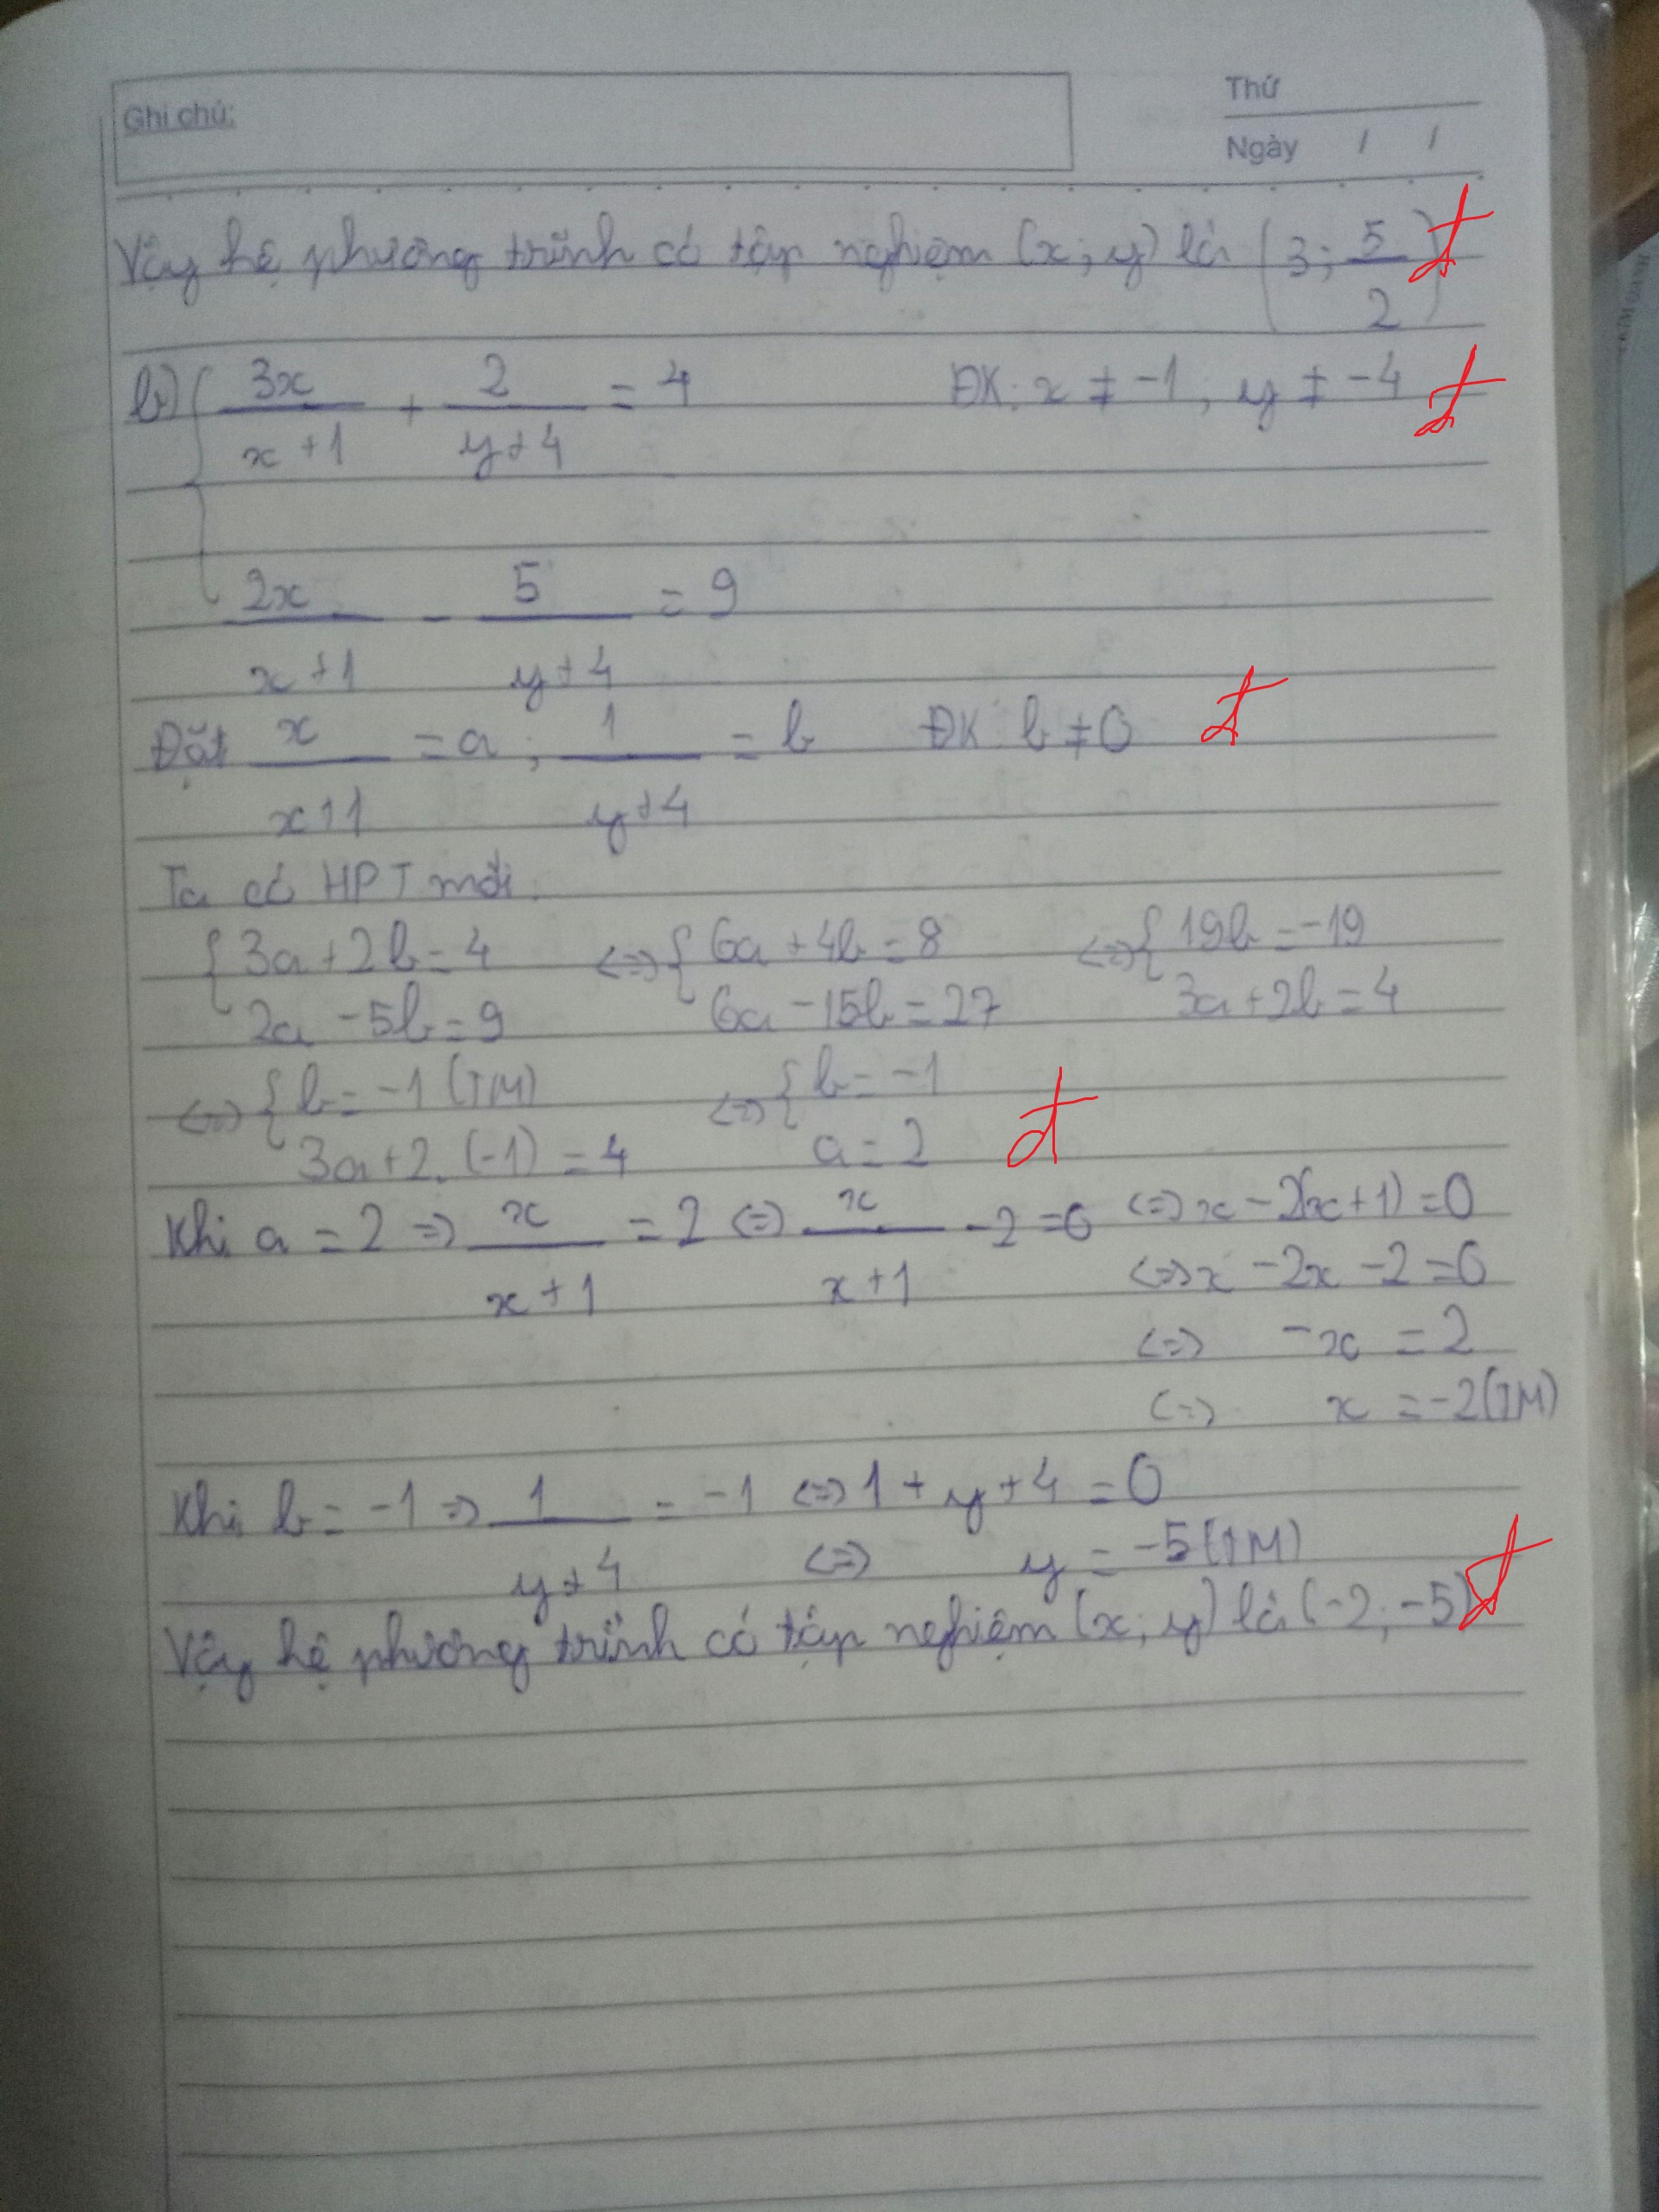 Ghi chú:
Thứ
Ngày / /
Vậy hệ phương trình có tập nghiệm (x; y) là (3; 5/2) đ
b) { 3x/(x+1) + 2/(y+4) = 4 ĐK: x ≠ -1, y ≠ -4 đ
2x/(x+1) - 5/(y+4) = 9
Đặt x/(x+1) = a; 1/(y+4) = b ĐK: b ≠ 0 đ
Ta có HPT mới:
{ 3a + 2b = 4 <=> { 6a + 4b = 8 <=> { 19b = -19
2a - 5b = 9 6a - 15b = 27 3a + 2b = 4
<=> { b = -1 (TM) <=> { b = -1
3a + 2.(-1) = 4 a = 2 đ
Khi a = 2 => x/(x+1) = 2 <=> x/(x+1) - 2 = 0 <=> x - 2(x+1) = 0
<=> x - 2x - 2 = 0
<=> -x = 2
<=> x = -2 (TM)
Khi b = -1 => 1/(y+4) = -1 <=> 1 + y + 4 = 0
<=> y = -5 (TM)
Vậy hệ phương trình có tập nghiệm (x; y) là (-2; -5) đ